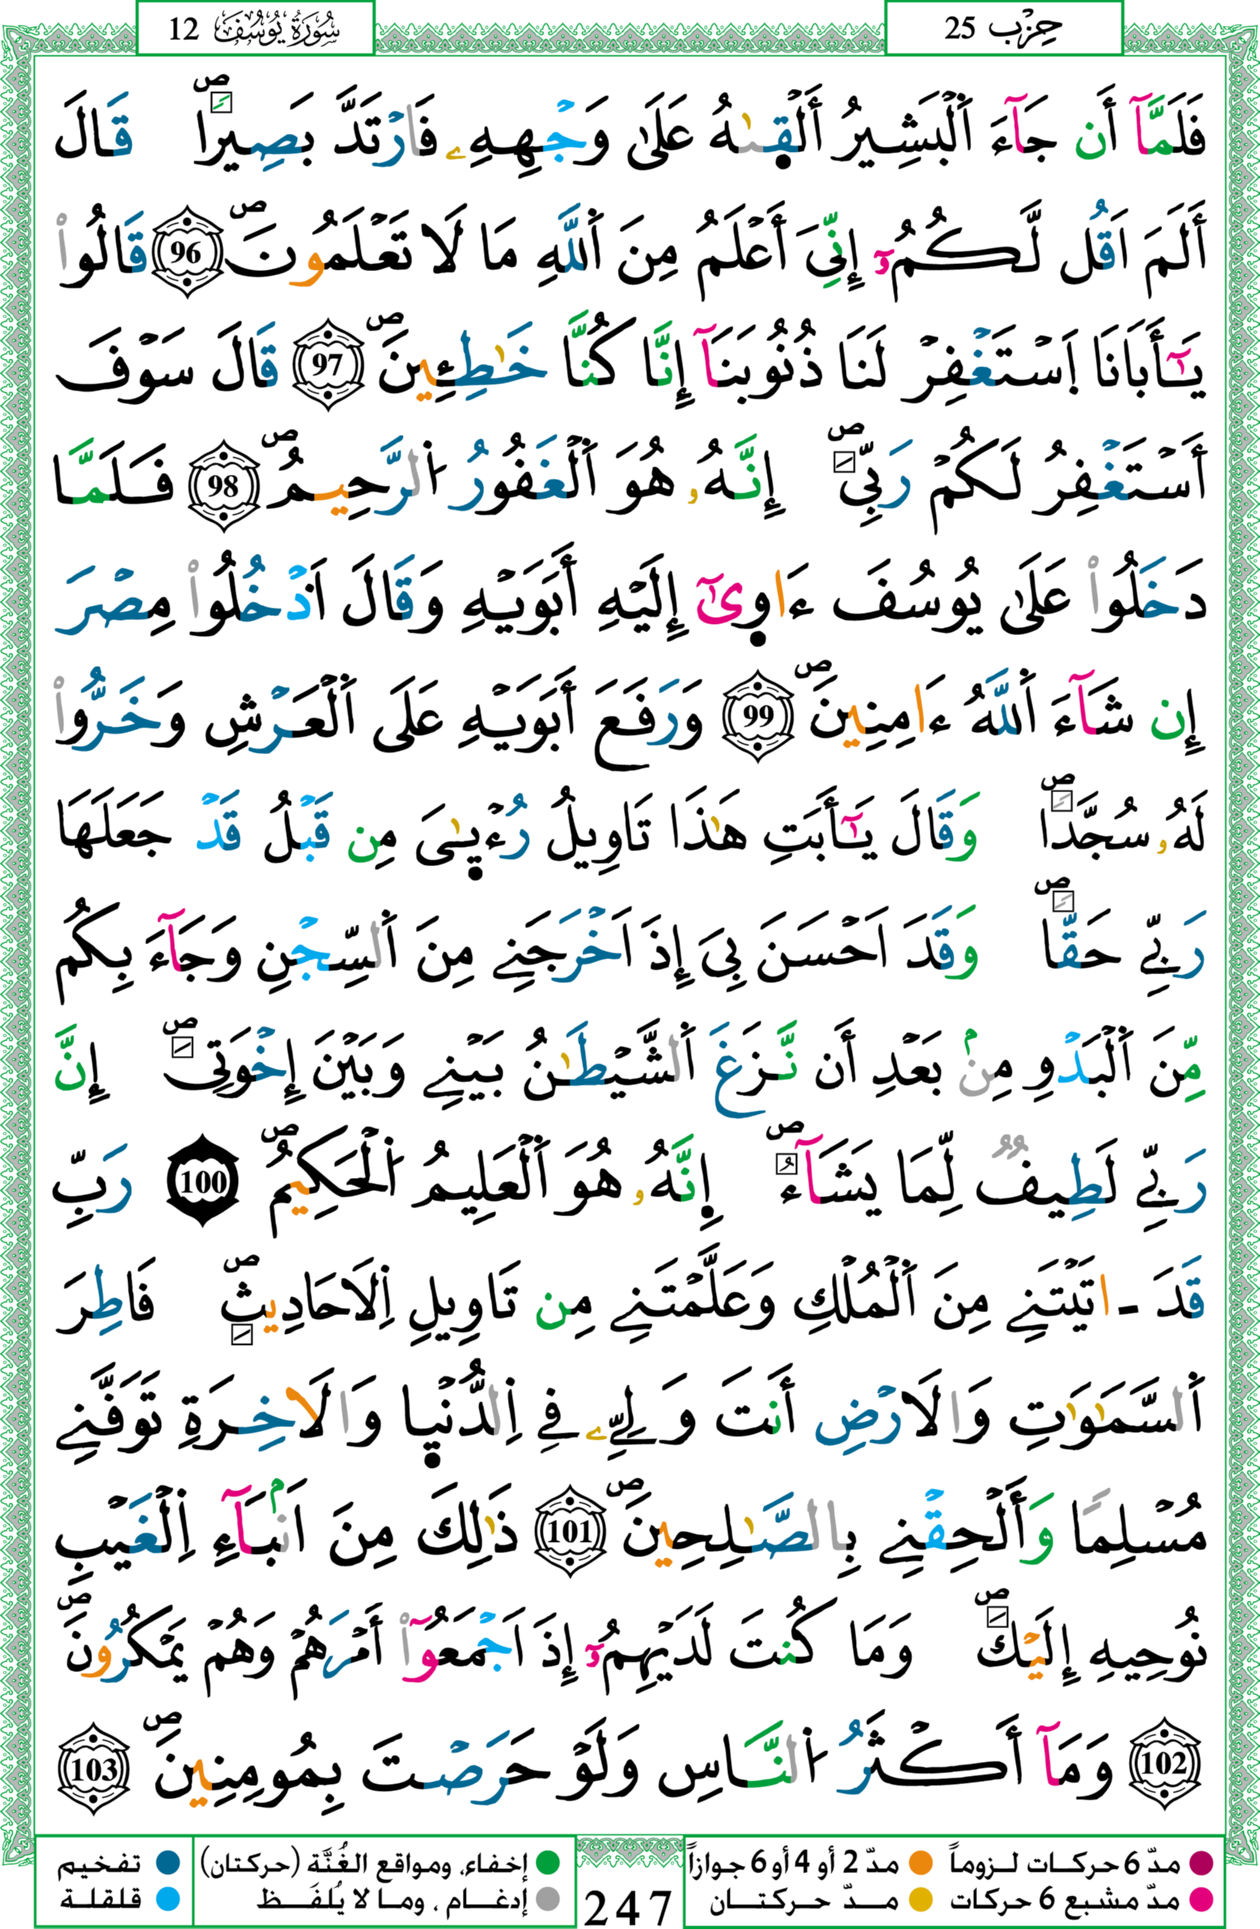 حِزْب 25
سُورَةُ يُوسُفَ 12
فَلَمَّآ أَن جَآءَ اَ۬لْبَشِيرُ أَلْق۪ىٰهُ عَلَىٰ وَجْهِهِۦ فَارْتَدَّ بَصِيراٗۖ قَالَ
أَلَمَ اَقُل لَّكُمُۥٓ إِنِّيَ أَعْلَمُ مِنَ اَ۬للَّهِ مَا لَا تَعْلَمُونَۖ 96 قَالُواْ
يَٰٓأَبَانَا اَ۪سْتَغْفِرْ لَنَا ذُنُوبَنَآ إِنَّا كُنَّا خَٰطِـِٕينَۖ 97 قَالَ سَوْفَ
أَسْتَغْفِرُ لَكُمْ رَبِّيَۖ إِنَّهُۥ هُوَ اَ۬لْغَفُورُ اُ۬لرَّحِيمُۖ 98 فَلَمَّا
دَخَلُواْ عَلَىٰ يُوسُفَ ءَاو۪ىٰٓ إِلَيْهِ أَبَوَيْهِ وَقَالَ اَ۟دْخُلُواْ مِصْرَ
إِن شَآءَ اَ۬للَّهُ ءَامِنِينَۖ 99 وَرَفَعَ أَبَوَيْهِ عَلَى اَ۬لْعَرْشِ وَخَرُّواْ
لَهُۥ سُجَّداٗۖ وَقَالَ يَٰٓأَبَتِ هَٰذَا تَاوِيلُ رُءْي۪ـٰىَ مِن قَبْلُ قَدْ جَعَلَهَا
رَبِّي حَقّاٗۖ وَقَدَ اَحْسَنَ بِيَ إِذَ اَخْرَجَنِي مِنَ اَ۬لسِّجْنِ وَجَآءَ بِكُم
مِّنَ اَ۬لْبَدْوِ مِنۢ بَعْدِ أَن نَّزَغَ اَ۬لشَّيْطَٰنُ بَيْنِي وَبَيْنَ إِخْوَتِيَۖ إِنَّ
رَبِّي لَطِيفٞ لِّمَا يَشَآءُۖ إِنَّهُۥ هُوَ اَ۬لْعَلِيمُ اُ۬لْحَكِيمُۖ 100 رَبِّ
قَدَ ـ اتَيْتَنِي مِنَ اَ۬لْمُلْكِ وَعَلَّمْتَنِي مِن تَاوِيلِ اِ۬لَاحَادِيثِۖ فَاطِرَ
اَ۬لسَّمَٰوَٰتِ وَالَارْضِ أَنتَ وَلِيِّۦ فِي اِ۬لدُّنْي۪ا وَالَاخِرَةِ تَوَفَّنِي
مُسْلِماٗ وَأَلْحِقْنِي بِالصَّٰلِحِينَۖ 101 ذَٰلِكَ مِنَ اَنۢبَآءِ اِ۬لْغَيْبِ
نُوحِيهِ إِلَيْكَۖ وَمَا كُنتَ لَدَيْهِمُۥٓ إِذَ اَجْمَعُوٓاْ أَمْرَهُمْ وَهُمْ يَمْكُرُونَۖ
102 وَمَآ أَكْثَرُ اُ۬لنَّاسِ وَلَوْ حَرَصْتَ بِمُومِنِينَۖ 103
مدّ 6 حركات لـزوماً ● مدّ 2 أو 4 أو 6 جوازاً
مدّ مشبع 6 حركات ● مــدّ حـركتــان
247
إخفاء، ومواقع الغُنَّة (حركتان) ● تفخيم
إدغــام ، ومـا لا يُلفَــظ ● قلقلة